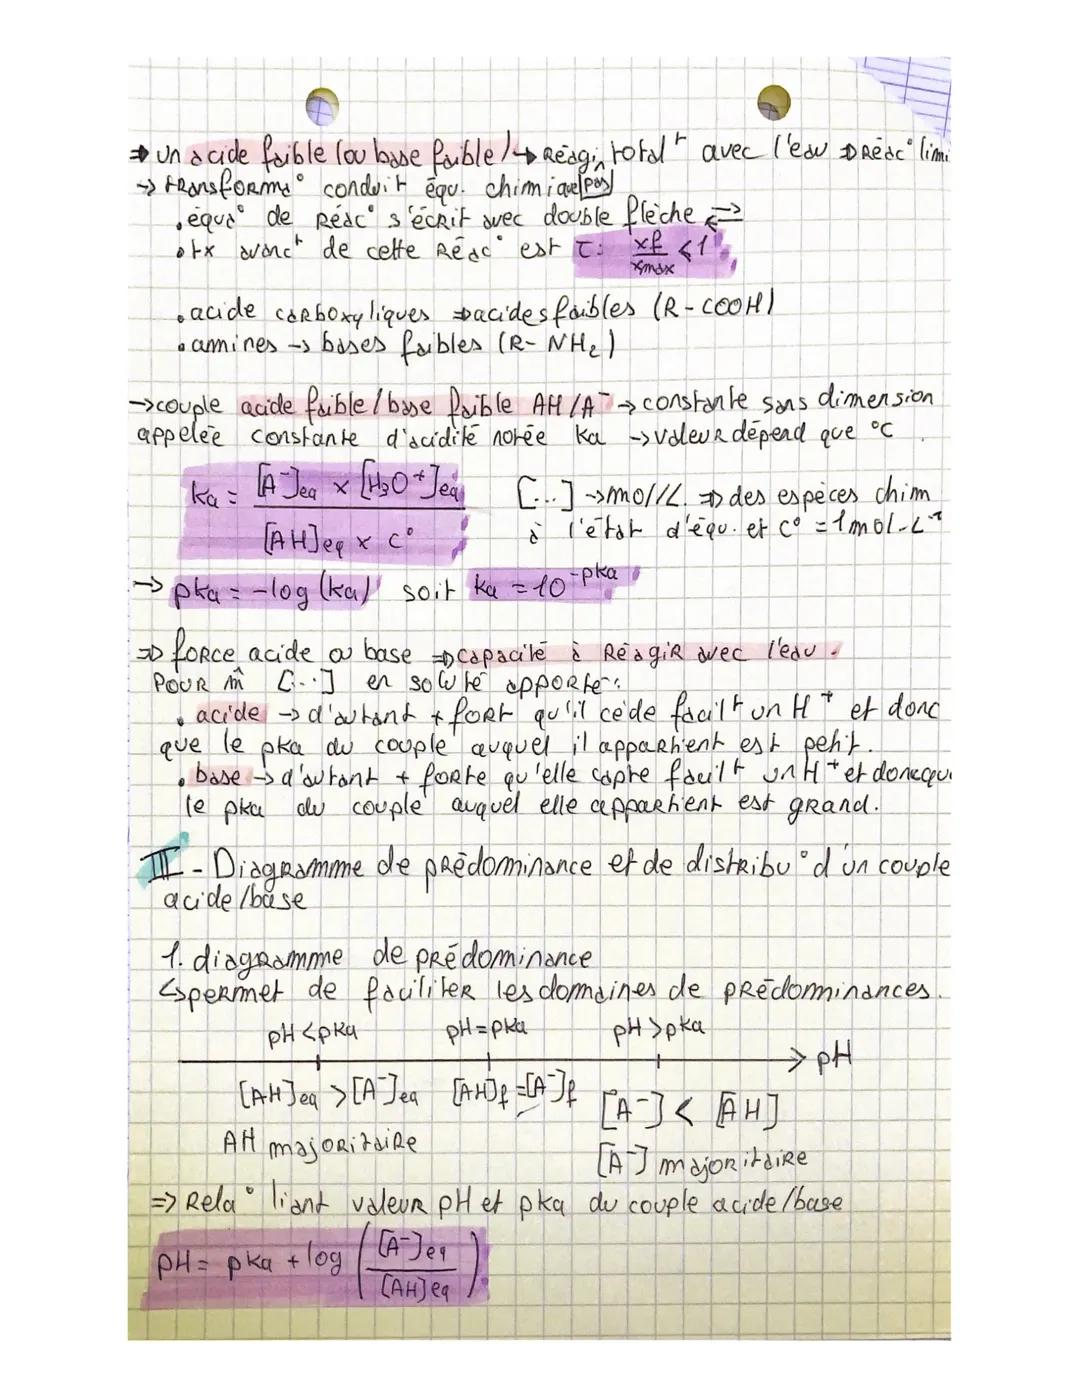 ⇒ un acide faible (ou base faible) ↳ Réagit totalt avec l'eau ⇒ Réac° limi
→ transforma° conduit équ. chimique pas
• équa° de Réac° s'écrit avec double flèche ⇄
• tx avanct de cette Réac° est τ: xf/xmax < 1
• acide carboxyliques ⇒ acides faibles (R-COOH)
• amines → bases faibles (R-NH2)
→ couple acide faible / base faible AH/A⁻ → constante sans dimension
appelée constante d'acidité notée Ka → valeur dépend que °C
Ka = [A⁻]eq × [H3O⁺]eq / [AH]eq × c° [...] → mol/L. ⇒ des espèces chim
à l'état d'équ. et c° = 1mol.L⁻¹
→ pka = -log (ka) soit ka = 10^-pka
⇒ force acide ou base ⇒ capacité à Réagir avec l'eau.
Pour m̂ [...] en soluté apporté:
• acide → d'autant + fort qu'il cède facilt un H⁺ et donc
que le pka du couple auquel il appartient est petit.
• base → d'autant + forte qu'elle capte facilt un H⁺ et doncqu
le pka du couple auquel elle appartient est grand.
III - Diagramme de prédominance et de distribu° d'un couple
acide/base
1. diagramme de prédominance
↳ permet de faciliter les domaines de prédominances.
pH < pka pH = pka pH > pka
→ pH
[AH]eq > [A⁻]eq [AH]f = [A⁻]f [A⁻] < [AH]
AH majoritaire [A⁻] majoritaire
⇒ Rela° liant valeur pH et pka du couple acide/base
pH = pka + log ([A⁻]eq / [AH]eq)